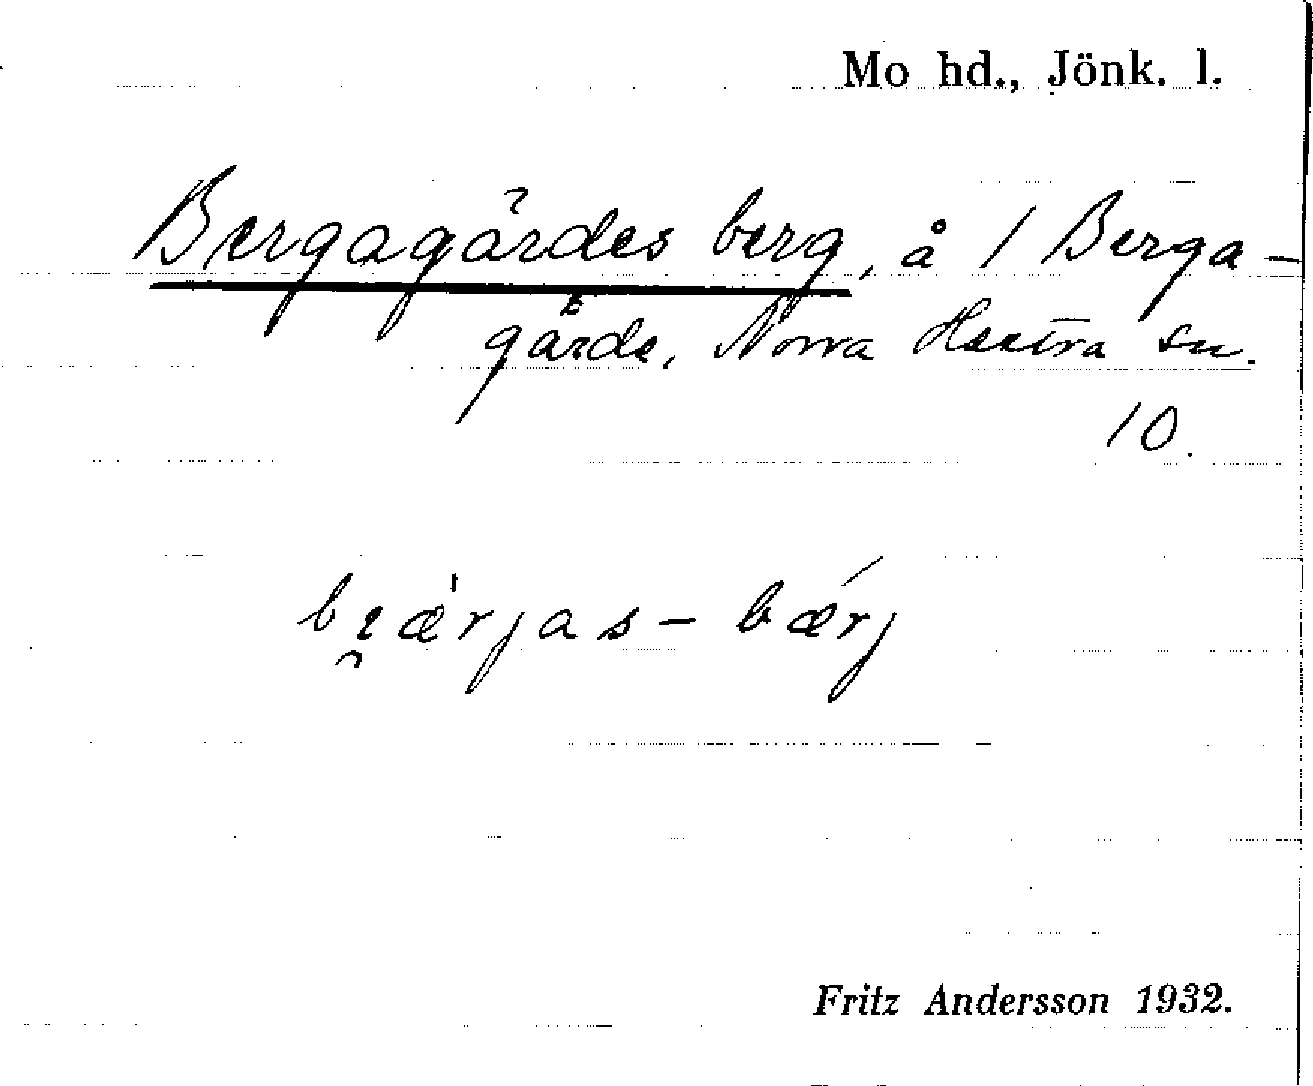 Mo hd., Jönk. l.
Bergagärdes berg, å 1 Berga-
gärde, Norra Hestra sn.
10.
bɪ̯ærjas-bærj
Fritz Andersson 1932.